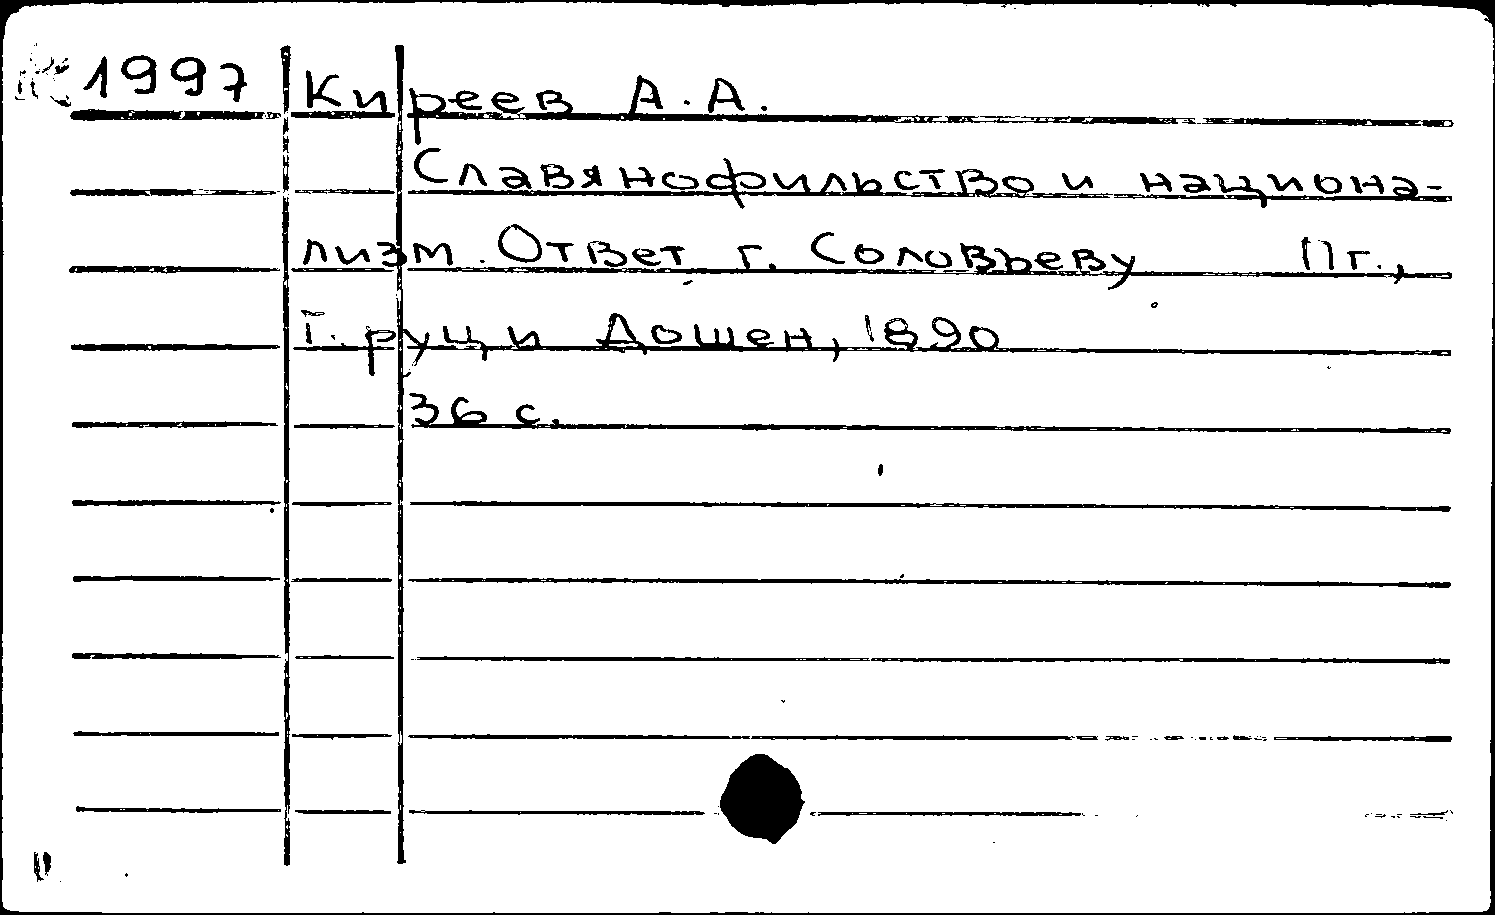 К 1997 Киреев А.А.
Славянофильство и национа-
лизм. Ответ г. Соловьеву Пг.,
Т. рущи Дошен, 1890
36 с.